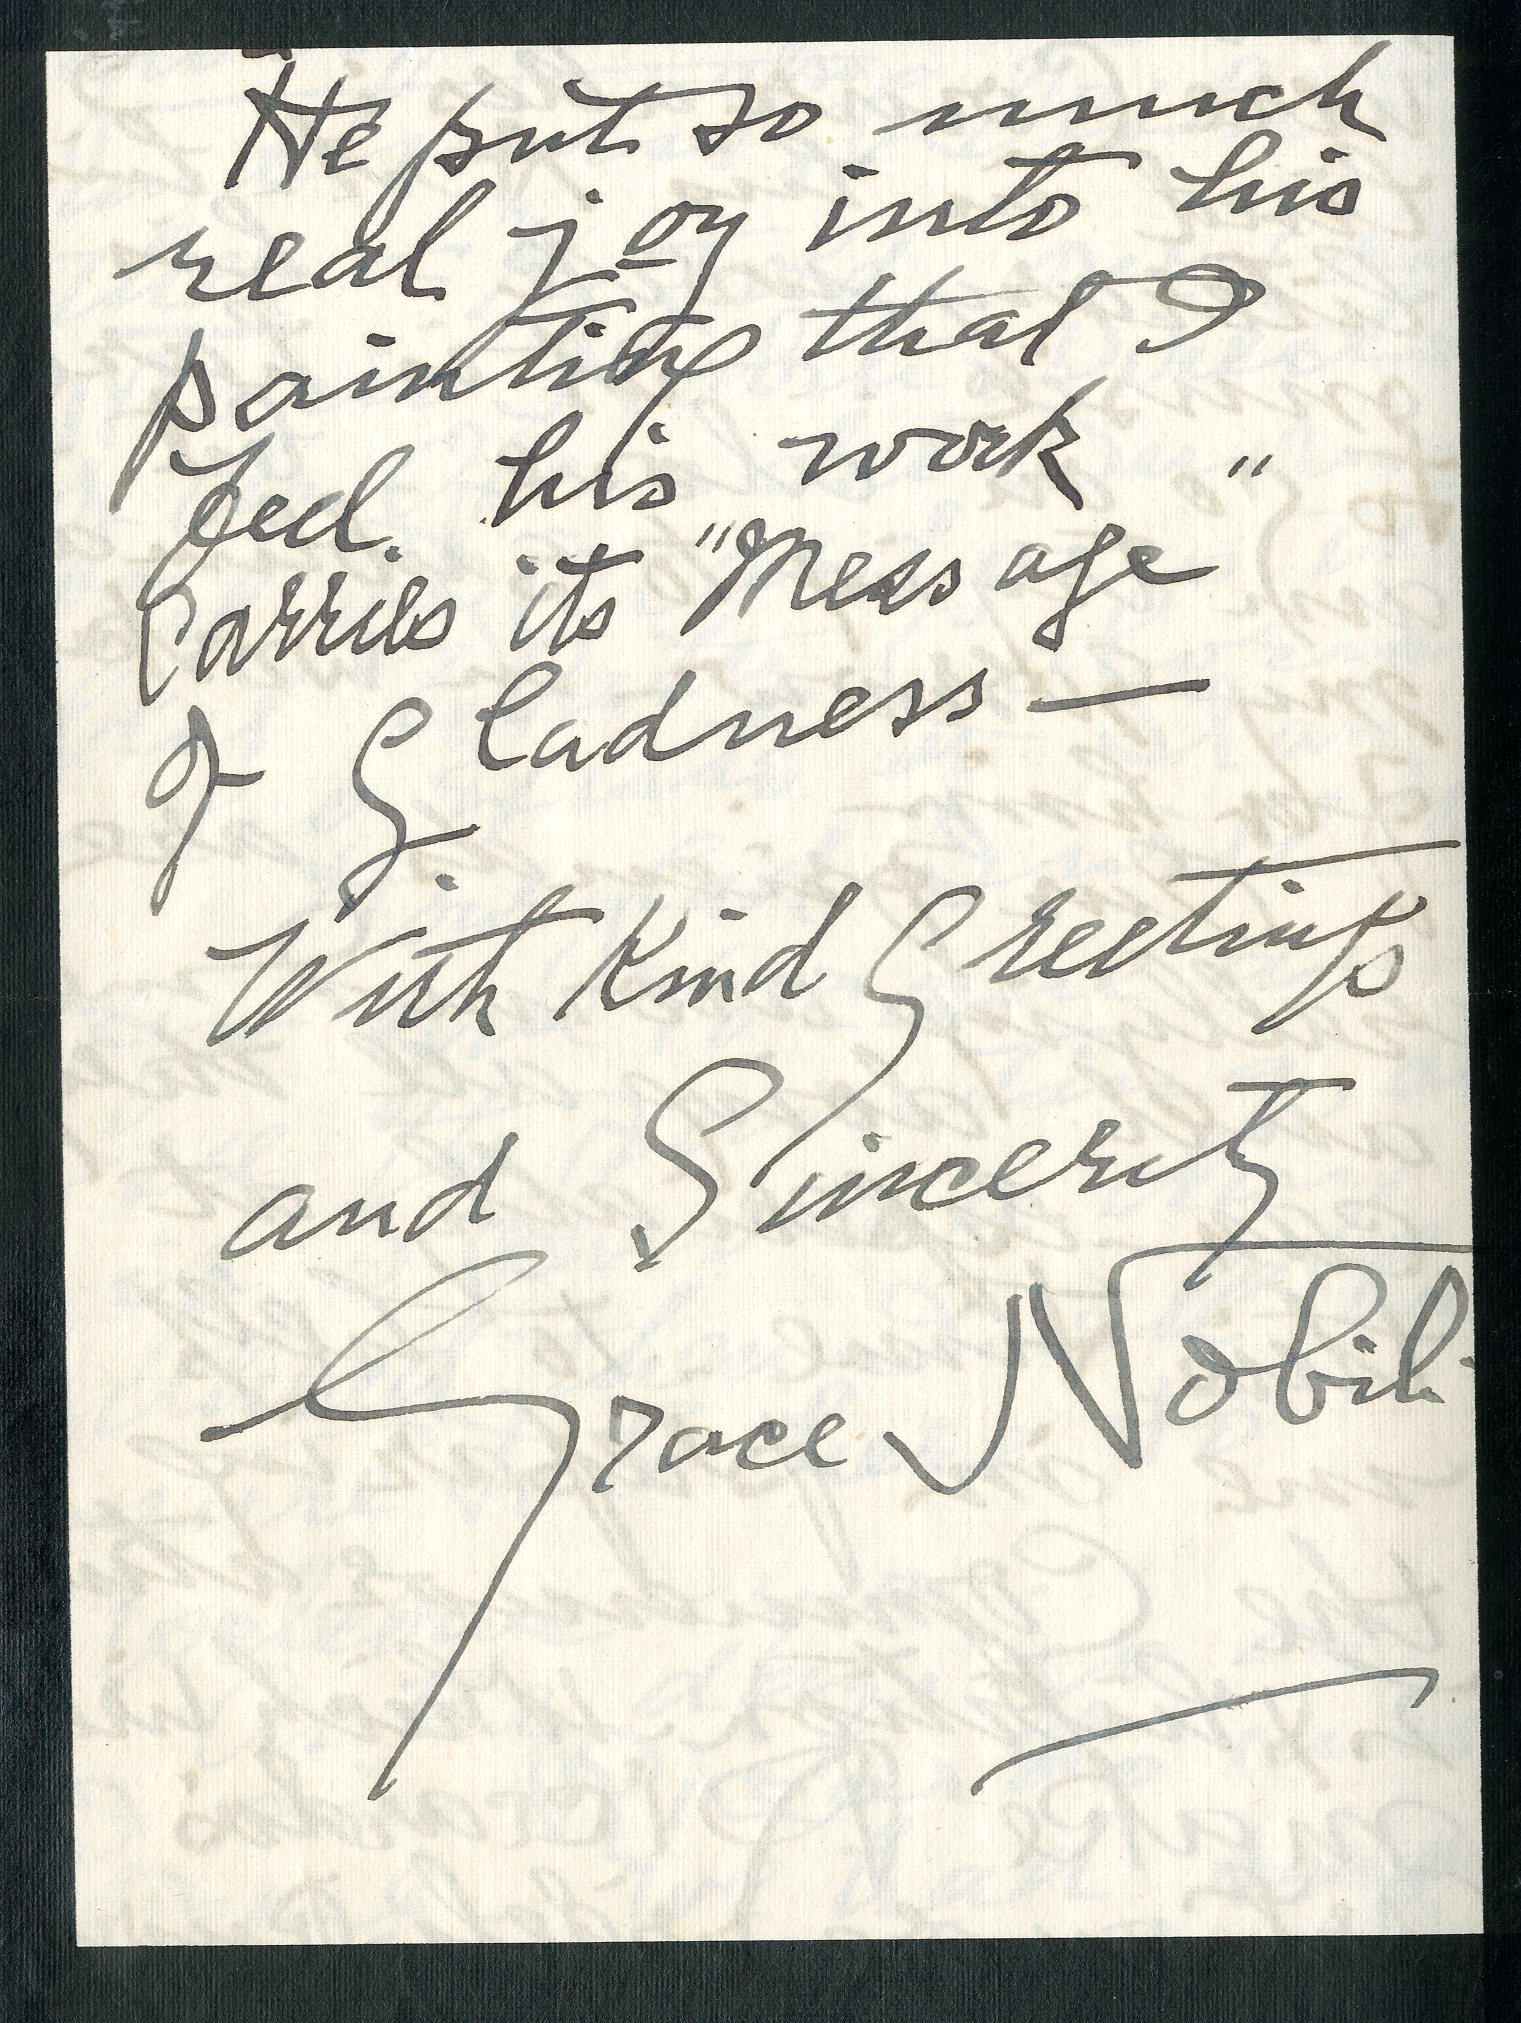 He put so much
real joy into his
painting that I
feel his work
Carries its "Message"
of Gladness—
With Kind Greetings
and Sincerity
Grace Nobili